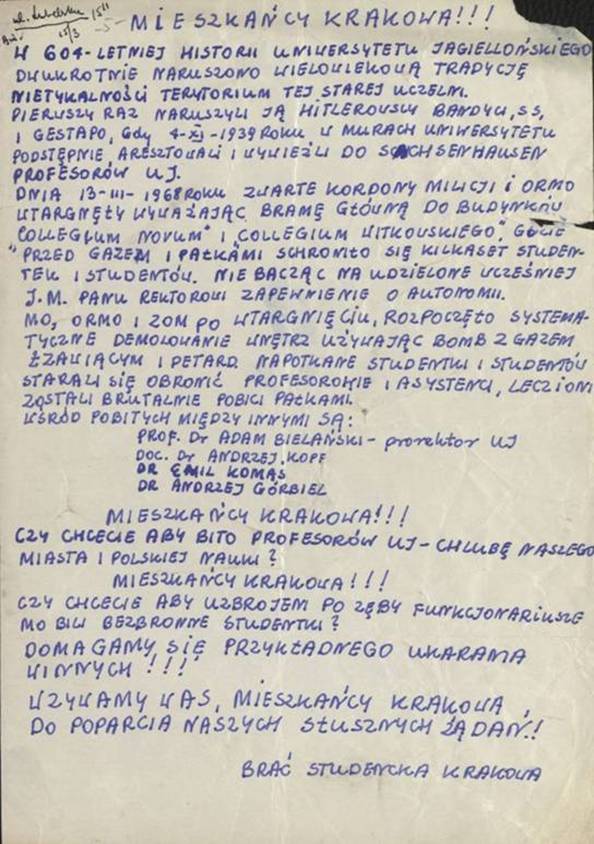 ul. Lubelska 15II
15/3
MIESZKAŃCY KRAKOWA!!!
W 604-LETNIEJ HISTORII UNIWERSYTETU JAGIELLOŃSKIEGO
DWUKROTNIE NARUSZONO WIELOWIEKOWĄ TRADYCJĘ
NIETYKALNOŚCI TERYTORIUM TEJ STAREJ UCZELNI.
PIERWSZY RAZ NARUSZYLI JĄ HITLEROWSCY BANDYCI, SS,
I GESTAPO, Gdy 4-XI-1939 ROKU W MURACH UNIWERSYTETU
PODSTĘPNIE ARESZTOWALI I WYWIEŹLI DO SACHSENHAUSEN
PROFESORÓW UJ.
DNIA 13-III-1968 ROKU ZWARTE KORDONY MILICJI i ORMO
WTARGNĘŁY WYWAŻAJĄC BRAMĘ GŁÓWNĄ DO BUDYNKÓW
COLLEGIUM NOVUM" I "COLLEGIUM WITKOWSKIEGO", GDZIE
"PRZED GAZEM I PAŁKAMI SCHRONIŁO SIĘ KILKASET STUDEN-
TEK I STUDENTÓW. NIE BACZĄC NA UDZIELONE WCZEŚNIEJ
J.M. PANU REKTOROWI ZAPEWNIENIE O AUTONOMII.
MO, ORMO I ZOM PO WTARGNIĘCIU, ROZPOCZĘTO SYSTEMA-
TYCZNE DEMOLOWANIE WNĘTRZ UŻYWAJĄC BOMB Z GAZEM
ŁZAWIĄCYM I PETARD. NAPOTKANE STUDENTKI I STUDENTÓW
STARALI SIĘ OBRONIĆ PROFESOROWIE I ASYSTENCI, LECZ I ONI
ZOSTALI BRUTALNIE POBICI PAŁKAMI.
WŚRÓD POBITYCH MIĘDZY INNYMI SĄ:
PROF. Dr ADAM BIELAŃSKI - prorektor UJ
DOC. Dr ANDRZEJ KOPF
DR EMIL KOMAS
DR ANDRZEJ GÓRBIEL
MIESZKAŃCY KRAKOWA!!!
CZY CHCECIE ABY BITO PROFESORÓW UJ - CHLUBĘ NASZEGO
MIASTA I POLSKIEJ NAUKI?
MIESZKAŃCY KRAKOWA!!!
CZY CHCECIE ABY UZBROJENI PO ZĘBY FUNKCJONARIUSZE
MO BILI BEZBRONNE STUDENTKI?
DOMAGAMY SIĘ PRZYKŁADNEGO UKARANIA
WINNYCH!!!
WZYWAMY WAS, MIESZKAŃCY KRAKOWA,
DO POPARCIA NASZYCH SŁUSZNYCH ŻĄDAŃ!
BRAĆ STUDENCKA KRAKOWA